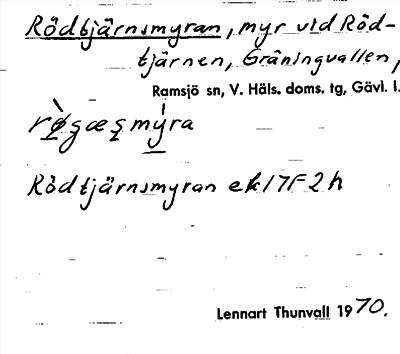 Rödtjärnsmyran, myr vid Röd-
tjärnen, Gråningvallen,
Ramsjö sn, V. Häls. doms. tg, Gävl. l.
Rödtjärnsmyran ek 17F2h
Lennart Thunvall 1970.